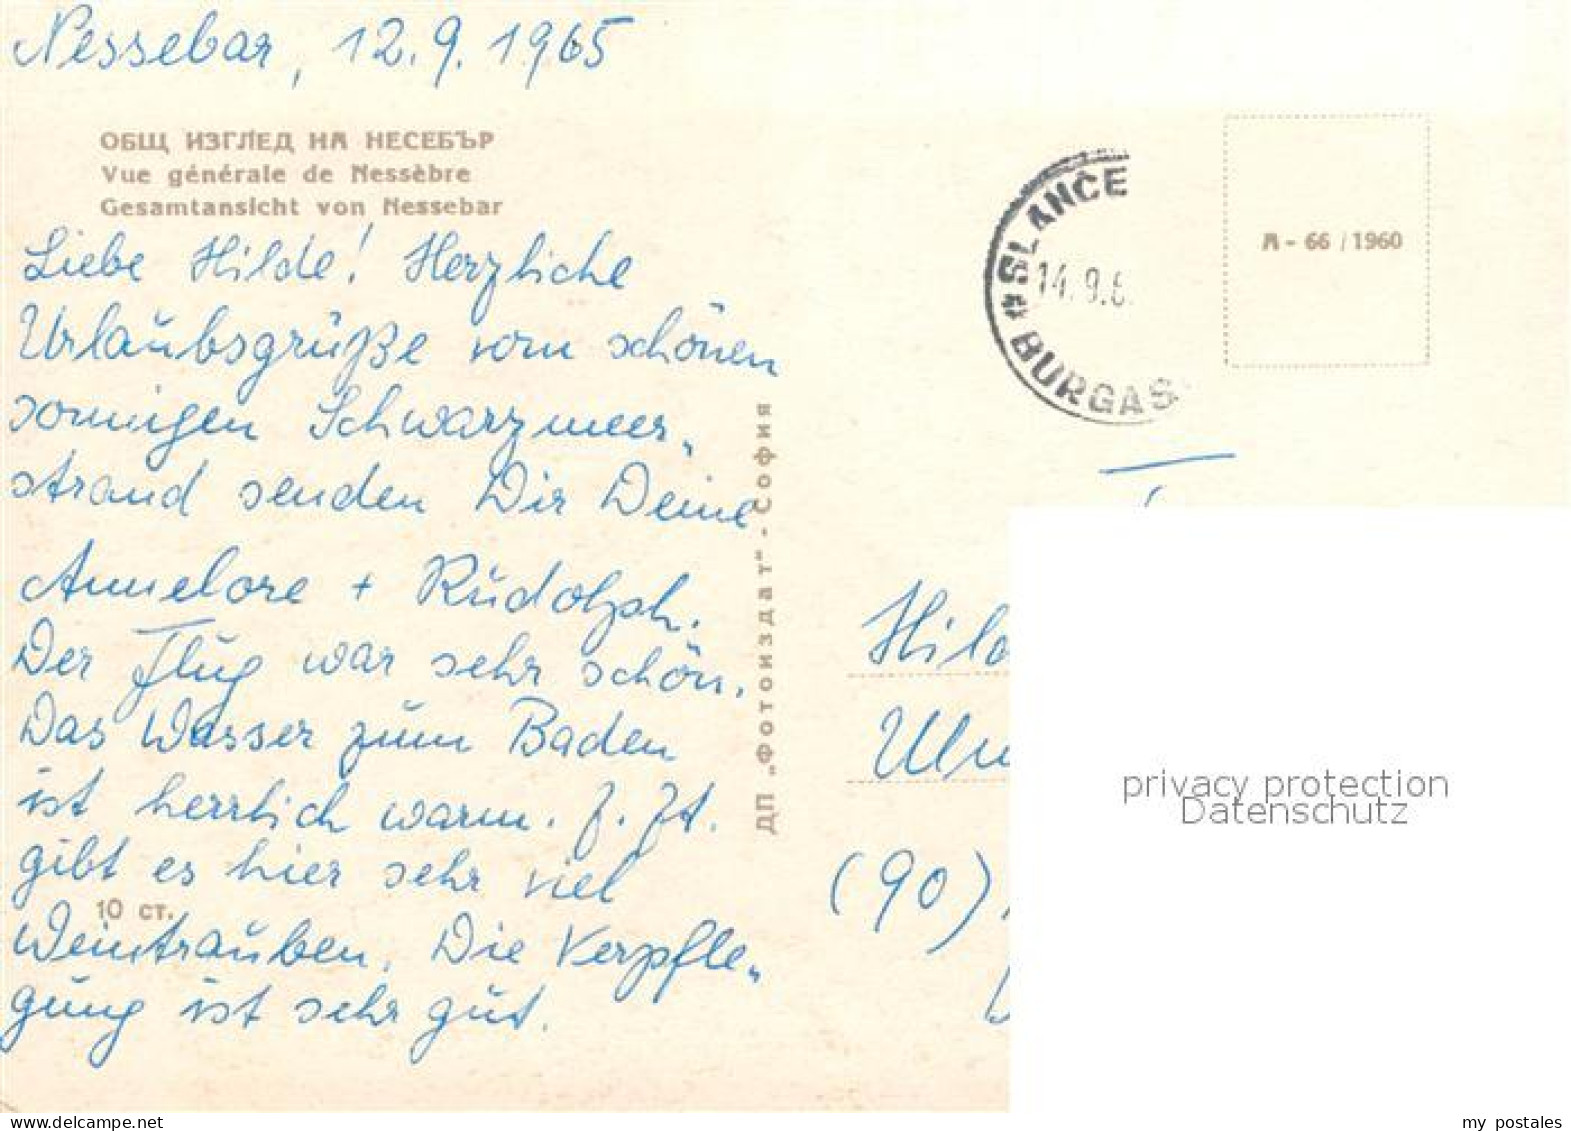 Nessebar, 12.9.1965
ОБЩ ИЗГЛЕД НА НЕСЕБЪР
Vue générale de Nessèbre
Gesamtansicht von Nessebar
Liebe Hilde! Herzliche
Urlaubsgrüße vom schönen
sonnigen Schwarzmeer-
strand senden Dir Deine
Annelore + Rudolph.
Der Flug war sehr schön.
Das Wasser zum Baden
ist herrlich warm. Z. Zt.
gibt es hier sehr viel
Weintrauben. Die Verpfle-
gung ist sehr gut.
10 ст.
ДП „Фотоиздат" - София
SLANCE
14.9.6
BURGAS
А - 66 / 1960
Hild
(90)
privacy protection
Datenschutz
my postales